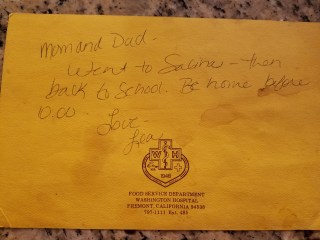 Mom and Dad -
Went to Sabine - then
back to School. Be home before
0:00
Love
W H
FOOD SERVICE DEPARTMENT
WASHINGTON HOSPITAL
FREMONT, CALIFORNIA 94538
797-1111 Ext. 485